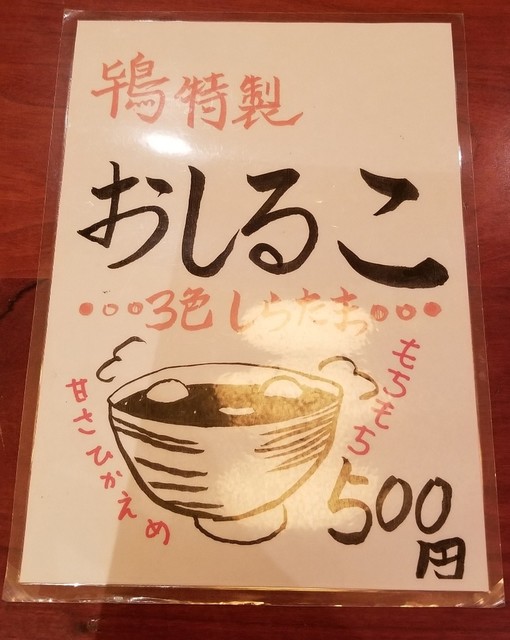 鴇特製
おしるこ
3色しらたま
もちもち
甘さひかえめ
500
円